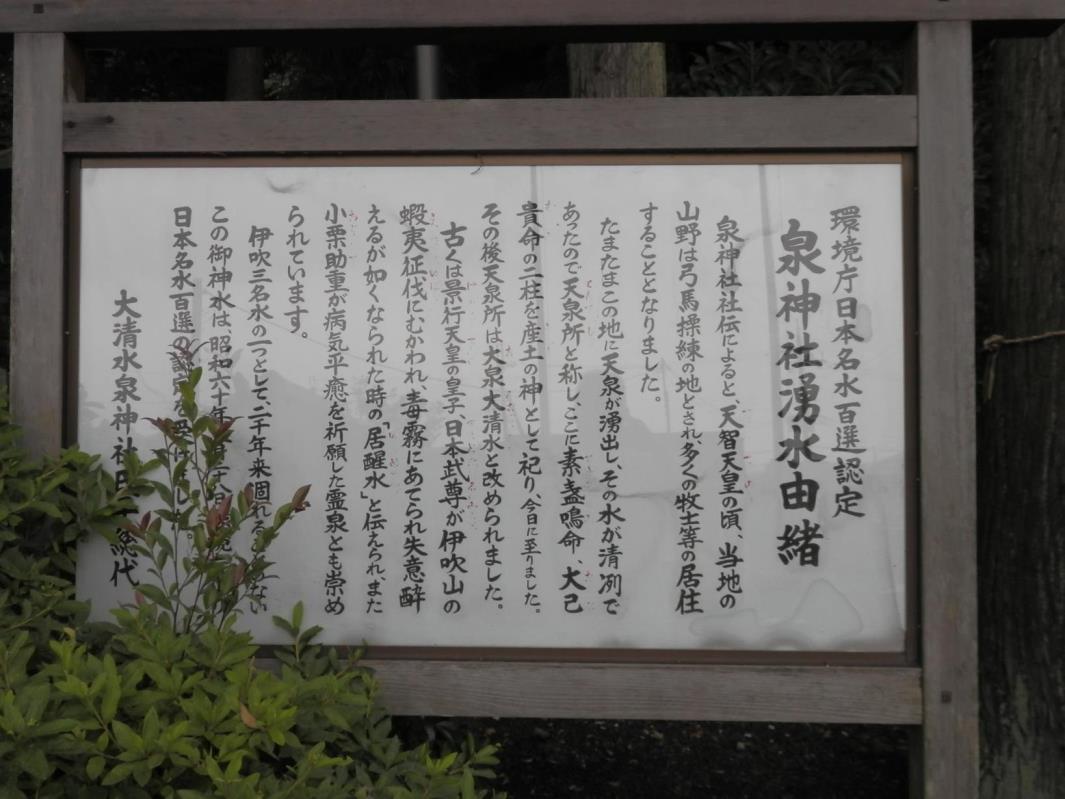 環境庁日本名水百選認定
泉神社湧水由緒
泉神社社伝によると、天智天皇の頃、当地の
山野は弓馬操練の地とされ、多くの牧士等の居住
することとなりました。
たまたまこの地に天泉が湧出し、その水が清冽で
あったので天泉所と称し、ここに素盞鳴命、大己
貴命の二柱を産土の神として祀り、今日に至りました。
その後天泉所は大泉大清水と改められました。
古くは景行天皇の皇子、日本武尊が伊吹山の
蝦夷征伐にむかわれ、毒霧にあてられ失意酔
えるが如くなられた時の「居醒水」と伝えられ、また
小栗助重が病気平癒を祈願した霊泉とも崇め
られています。
伊吹三名水の一つとして、二千年来涸れる ない
この御神水は、昭和六十年
日本名水百選の認定を受け
大清水泉神社 総代